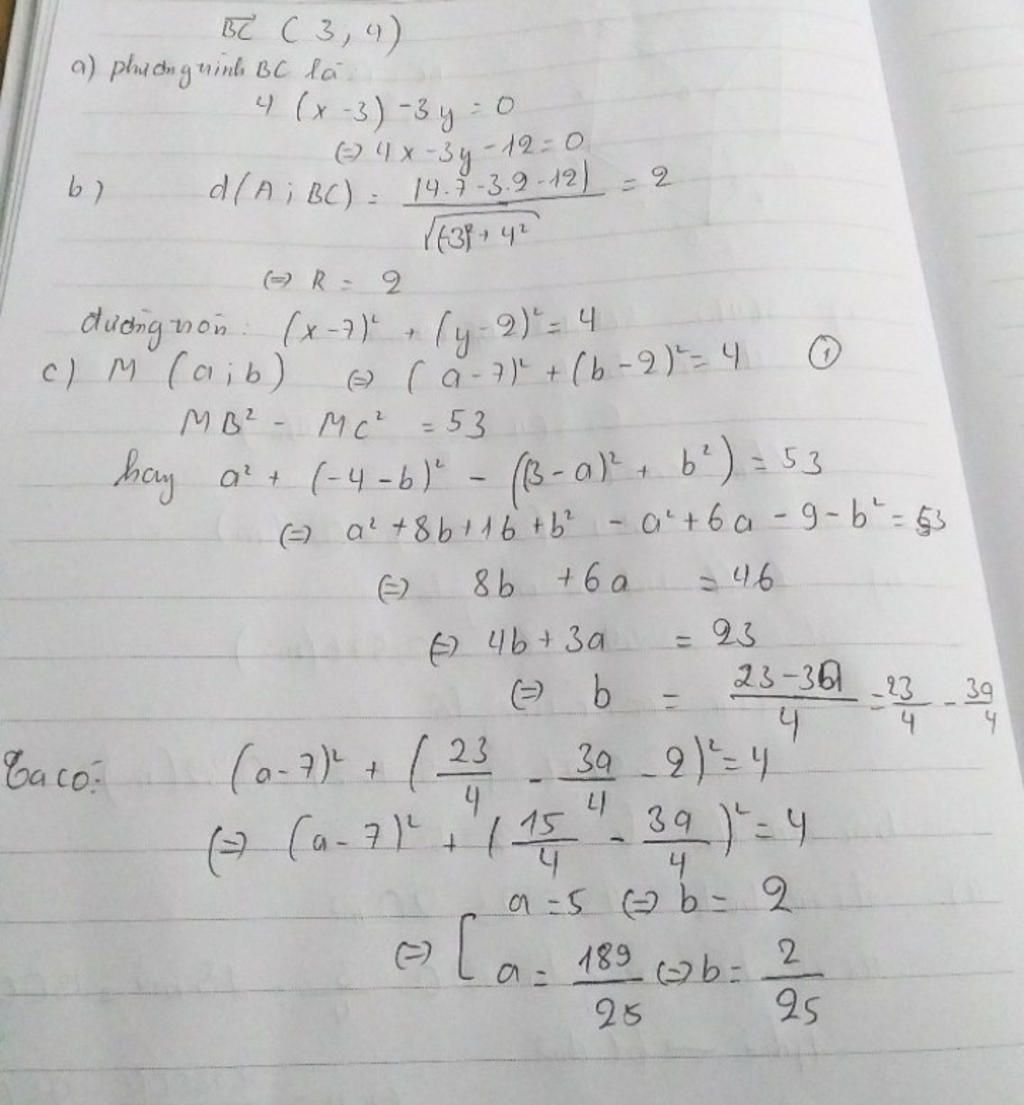 BC→ (3, 4)
a) phương trình BC là
4 (x - 3) - 3y = 0
(=) 4x - 3y - 12 = 0
b) d(A ; BC) = |4.7 - 3.2 - 12| / √((-3)² + 4²) = 2
(=) R = 2
đường tròn: (x - 7)² + (y - 2)² = 4
c) M (a ; b) (=) (a - 7)² + (b - 2)² = 4 ①
MB² - MC² = 53
hay a² + (-4 - b)² - ((3 - a)² + b²) = 53
(=) a² + 8b + 16 + b² - a² + 6a - 9 - b² = 53
(=) 8b + 6a = 46
(=) 4b + 3a = 23
(=) b = (23 - 3a)/4 = 23/4 - 3a/4
Ta có: (a - 7)² + (23/4 - 3a/4 - 2)² = 4
(=) (a - 7)² + (15/4 - 3a/4)² = 4
a = 5 (=) b = 2
(=) [ a = 189/25 (=) b = 2/25